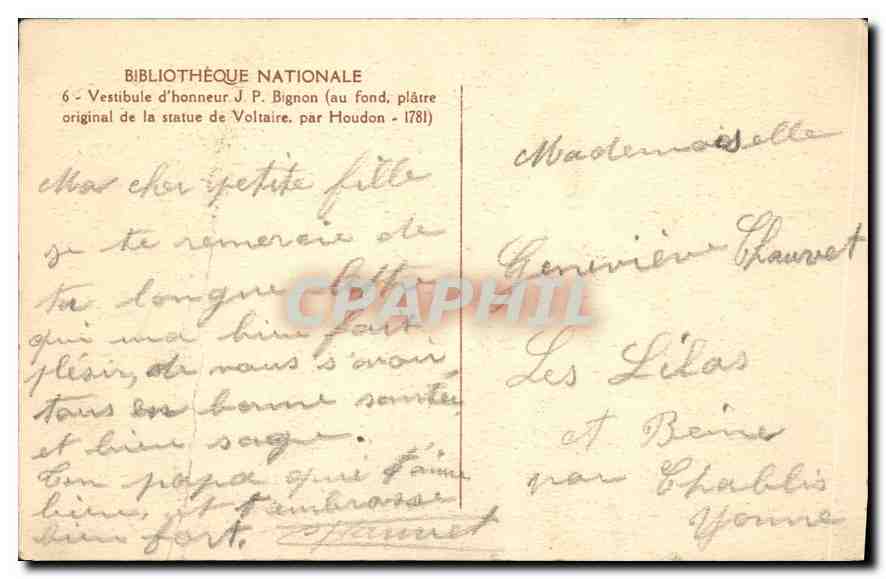 BIBLIOTHÈQUE NATIONALE
6 - Vestibule d'honneur J. P. Bignon (au fond, plâtre
original de la statue de Voltaire, par Houdon - 1781)
Ma cher petite fille
je te remercie de
ta longue lettre
qui ma bien fait
plésir, de vous s'avoir
tous en bonne santée,
et bien sage.
Ton papa qui t'aime
bien, et t'ambrasse
bien fort. Chauvet
Mademoiselle
Geneviève Chauvet
Les Lilas
et Beine
par Chablis
Yonne
CPAPHIL